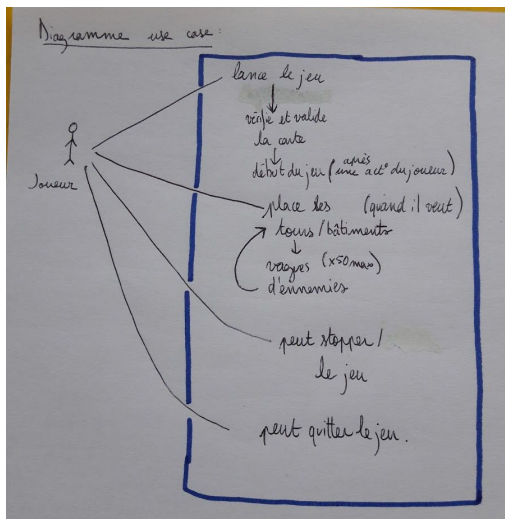 Diagramme use case :
lance le jeu
vérifie et valide
la carte
début du jeu (après
une act° du joueur)
Joueur
place les (quand il veut)
tours / bâtiments
vagues (x50 max)
d'ennemies
peut stopper /
le jeu
peut quitter le jeu.